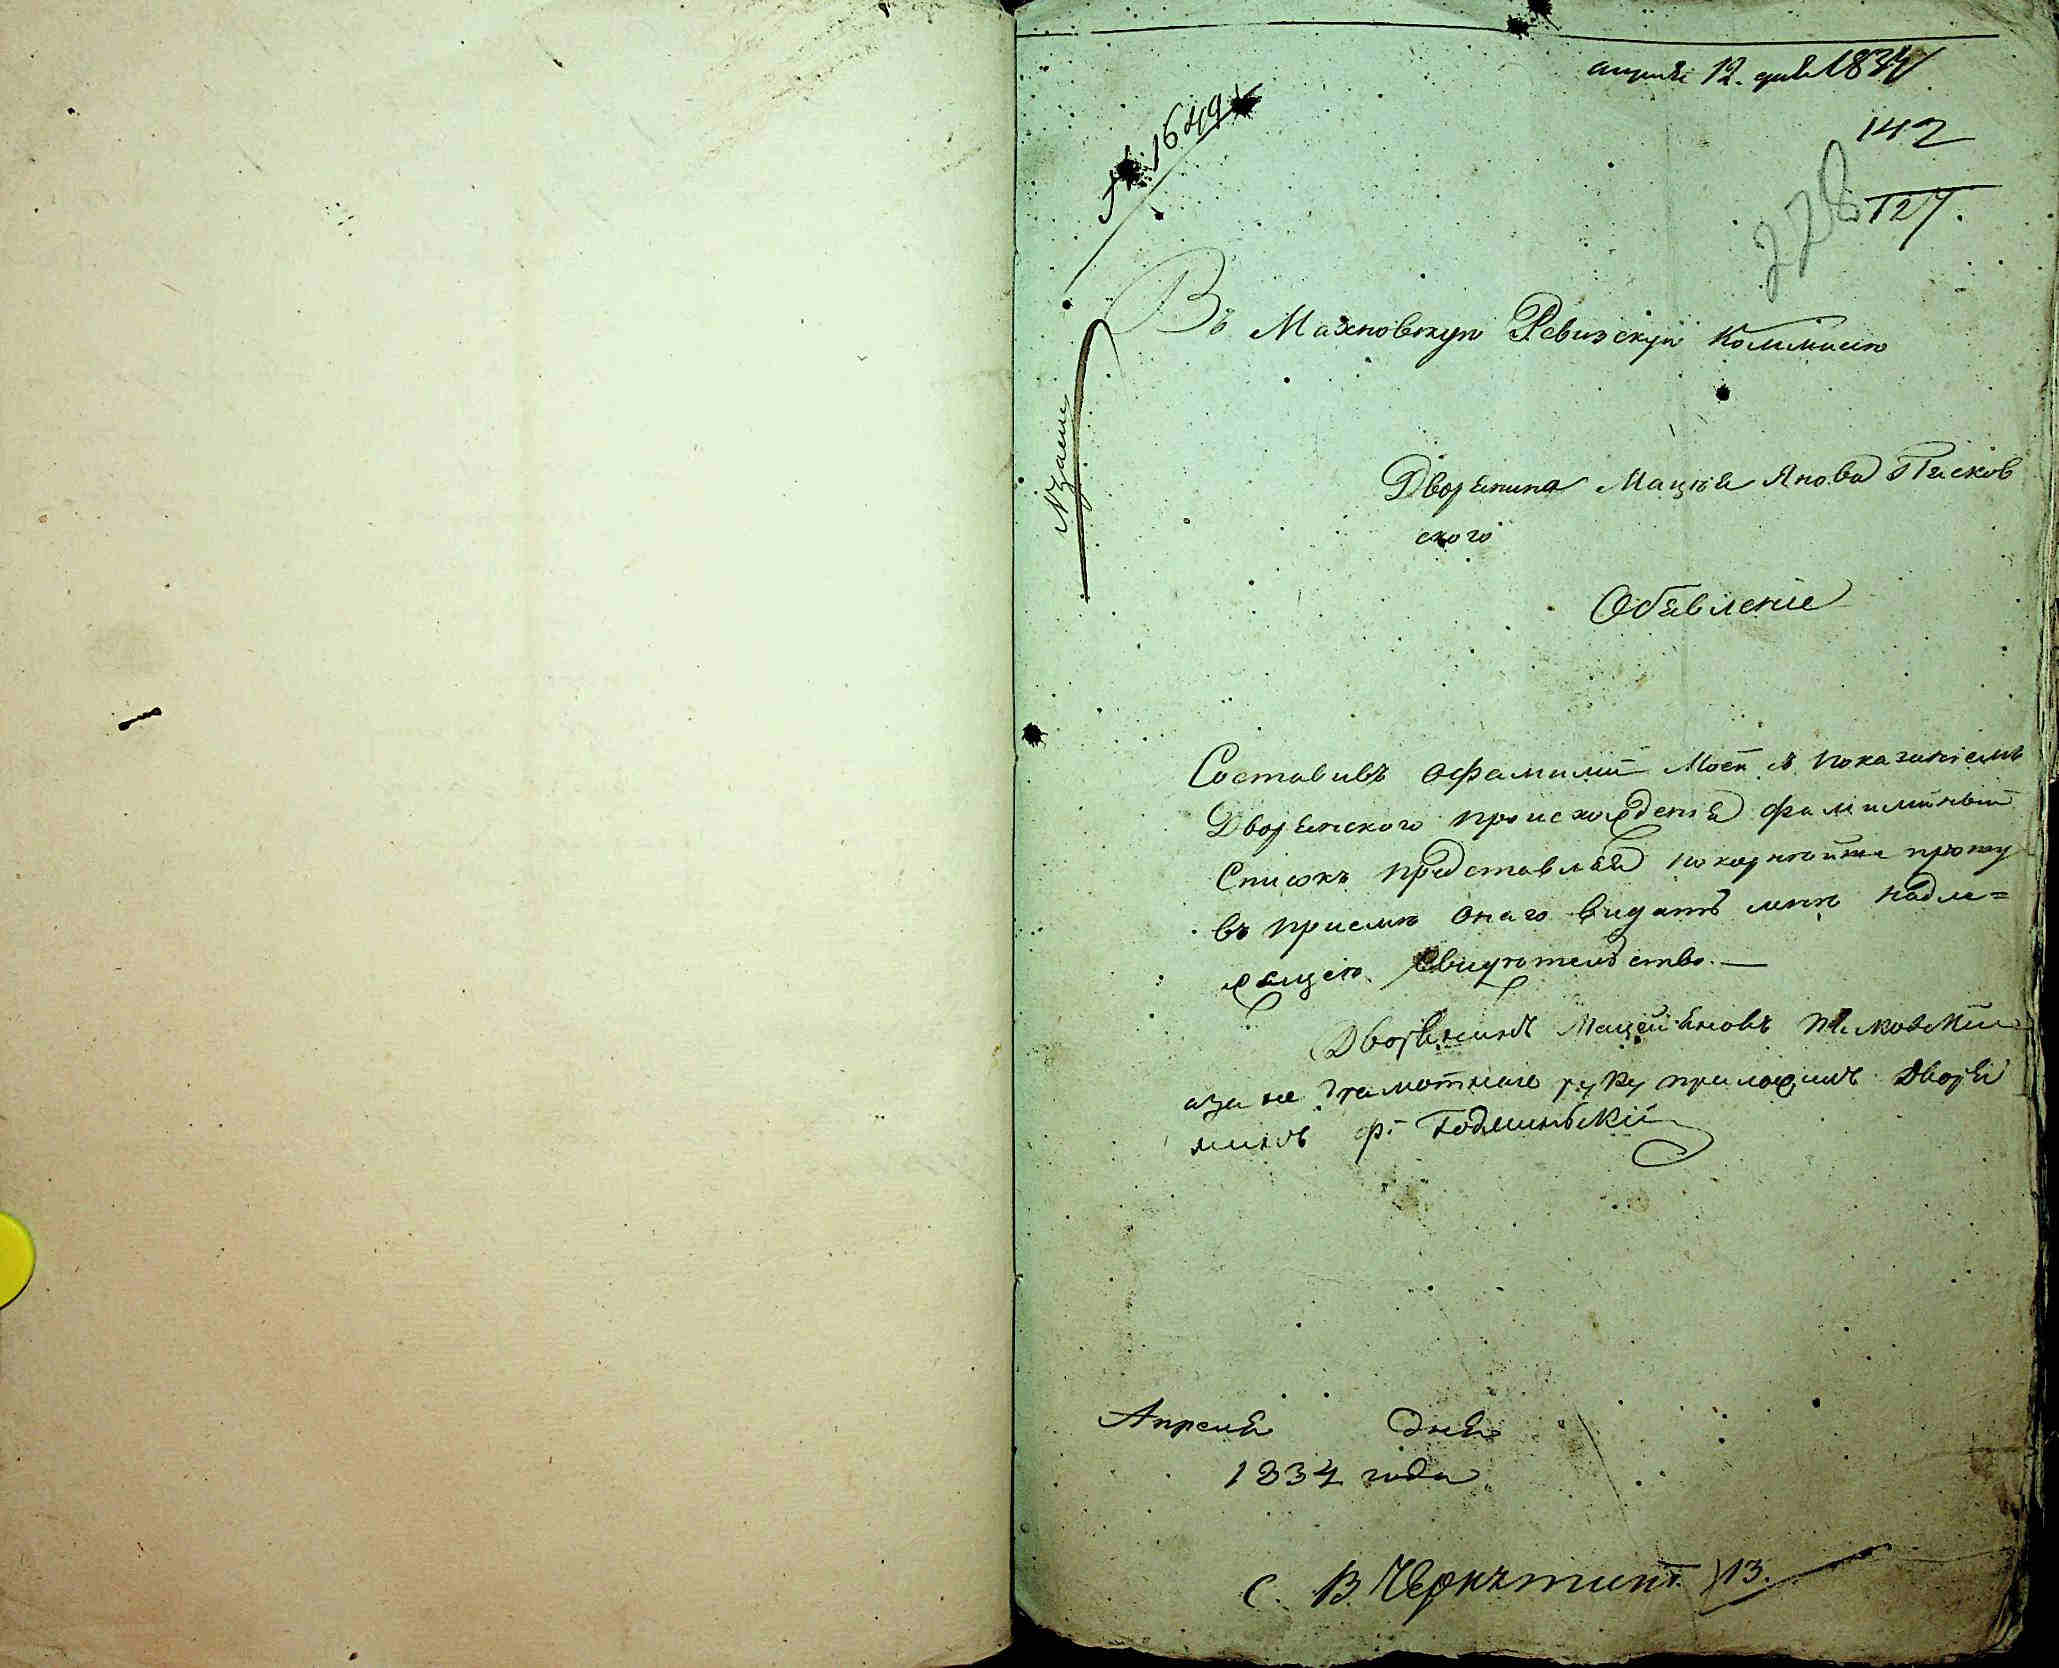 апреля 12. дня 1834
№ 1649
142
127.
228
Въ Махновскую Ревизскую Коммисію
Дворянина Мацѣя Янова Пясков
ского
Обявленіе
Составивъ о фамиліи Моей с показаніемъ
Дворянского происхожденія фамилійный
Списокъ представляя покорнѣйше прошу
въ приемѣ онаго видать мнѣ надле=
жащею Свидѣтельство.—
Дворянинъ Мацей Яновъ Пясковскій
а за не грамотнаго руку приложилъ Дворя
нинъ Ф.
Апреля дня
1834 года
с. В. 13.